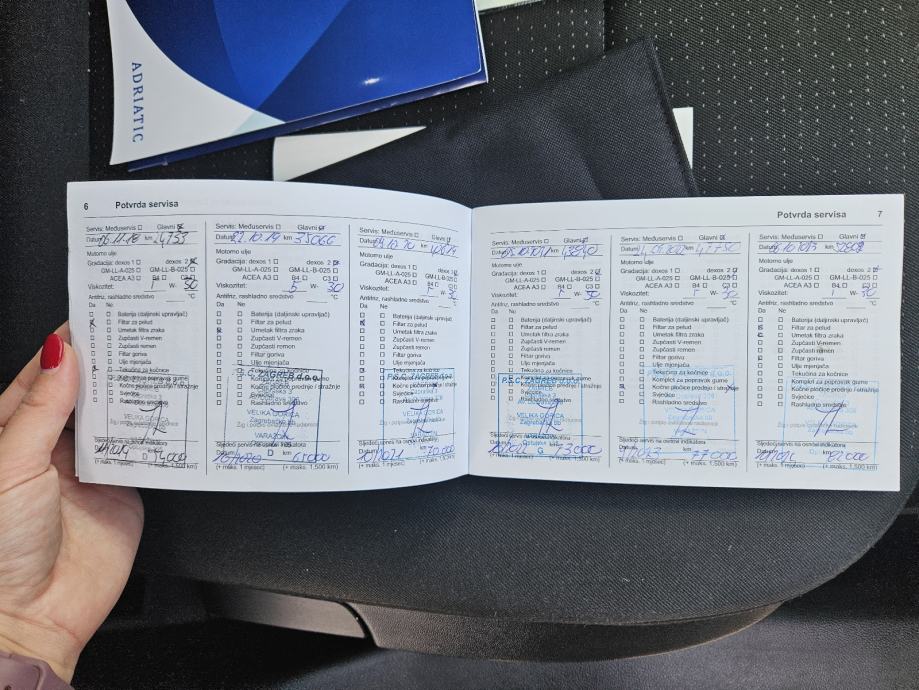 ADRIATIC
6 Potvrda servisa
Servis: Međuservis Glavni
Datum 06.11.18 km 24733
Motorno ulje
Gradacija: dexos 1 dexos 2
GM-LL-A-025 GM-LL-B-025
ACEA A3 B4 C3
Viskozitet: W- 30
Antifriz, rashladno sredstvo °C
Da Ne
Baterija (daljinski upravljač)
Filtar za pelud
Umetak filtra zraka
Zupčasti V-remen
Zupčasti remen
Filtar goriva
Ulje mjenjača
Tekućina za kočnice
Svjećice
Rashladno sredstvo
VELIKA GORICA
VARAŽDIN
Sljedeći servis na osnovi indikatora
Datum km
(+ maks. 1 mjesec) (+ maks. 1,500 km)
Servis: Međuservis Glavni
Datum 22.10.19 km 35066
Motorno ulje
Gradacija: dexos 1 dexos 2
GM-LL-A-025 GM-LL-B-025
ACEA A3 B4 C3
Viskozitet: 5 W- 30
Antifriz, rashladno sredstvo °C
Da Ne
Baterija (daljinski upravljač)
Filtar za pelud
Umetak filtra zraka
Zupčasti V-remen
Zupčasti remen
Filtar goriva
Ulje mjenjača
Tekućina za kočnice
Komplet za popravak gume
Kočne pločice prednje / stražnje
Svjećice
Rashladno sredstvo
P.S.C. ZAGREB d.o.o.
VELIKA GORICA
Zagrebačka bb
VARAŽDIN
Sljedeći servis na osnovi indikatora
Datum 10/2020 km 65000
(+ maks. 1 mjesec) (+ maks. 1,500 km)
Servis: Međuservis Glavni
Datum km
Motorno ulje
Gradacija: dexos 1 dexos 2
GM-LL-A-025 GM-LL-B-025
ACEA A3 B4 C3
Viskozitet: W- 30
Antifriz, rashladno sredstvo °C
Da Ne
Baterija (daljinski upravljač)
Filtar za pelud
Umetak filtra zraka
Zupčasti V-remen
Zupčasti remen
Filtar goriva
Ulje mjenjača
Tekućina za kočnice
Komplet za popravak gume
Kočne pločice prednje / stražnje
Svjećice
Rashladno sredstvo
P.S.C. ZAGREB d.o.o.
VELIKA GORICA
Sljedeći servis na osnovi indikatora
Datum 10/2021 km 70.000
(+ maks. 1 mjesec) (+ maks. 1,500 km)
Potvrda servisa 7
Servis: Međuservis Glavni
Datum km
Motorno ulje
Gradacija: dexos 1 dexos 2
GM-LL-A-025 GM-LL-B-025
ACEA A3 B4 C3
Viskozitet: W- 30
Antifriz, rashladno sredstvo °C
Da Ne
Baterija (daljinski upravljač)
Filtar za pelud
Umetak filtra zraka
Zupčasti V-remen
Zupčasti remen
Filtar goriva
Ulje mjenjača
Tekućina za kočnice
Komplet za popravak gume
Kočne pločice prednje / stražnje
Svjećice
Rashladno sredstvo
P.S.C. ZAGREB d.o.o.
VELIKA GORICA
Zagrebačka bb
Sljedeći servis na osnovi indikatora
Datum 10/2022 km 73000
(+ maks. 1 mjesec) (+ maks. 1,500 km)
Servis: Međuservis Glavni
Datum km 47750
Motorno ulje
Gradacija: dexos 1 dexos 2
GM-LL-A-025 GM-LL-B-025
ACEA A3 B4 C3
Viskozitet: W- 30
Antifriz, rashladno sredstvo °C
Da Ne
Baterija (daljinski upravljač)
Filtar za pelud
Umetak filtra zraka
Zupčasti V-remen
Zupčasti remen
Filtar goriva
Ulje mjenjača
Tekućina za kočnice
Komplet za popravak gume
Kočne pločice prednje / stražnje
Svjećice
Rashladno sredstvo
Sljedeći servis na osnovi indikatora
Datum km 77000
(+ maks. 1 mjesec) (+ maks. 1,500 km)
Servis: Međuservis Glavni
Datum km
Motorno ulje
Gradacija: dexos 1 dexos 2
GM-LL-A-025 GM-LL-B-025
ACEA A3 B4 C3
Viskozitet: W- 30
Antifriz, rashladno sredstvo °C
Da Ne
Baterija (daljinski upravljač)
Filtar za pelud
Umetak filtra zraka
Zupčasti V-remen
Zupčasti remen
Filtar goriva
Ulje mjenjača
Tekućina za kočnice
Komplet za popravak gume
Kočne pločice prednje / stražnje
Svjećice
Rashladno sredstvo
Sljedeći servis na osnovi indikatora
Datum km 82000
(+ maks. 1 mjesec) (+ maks. 1,500 km)